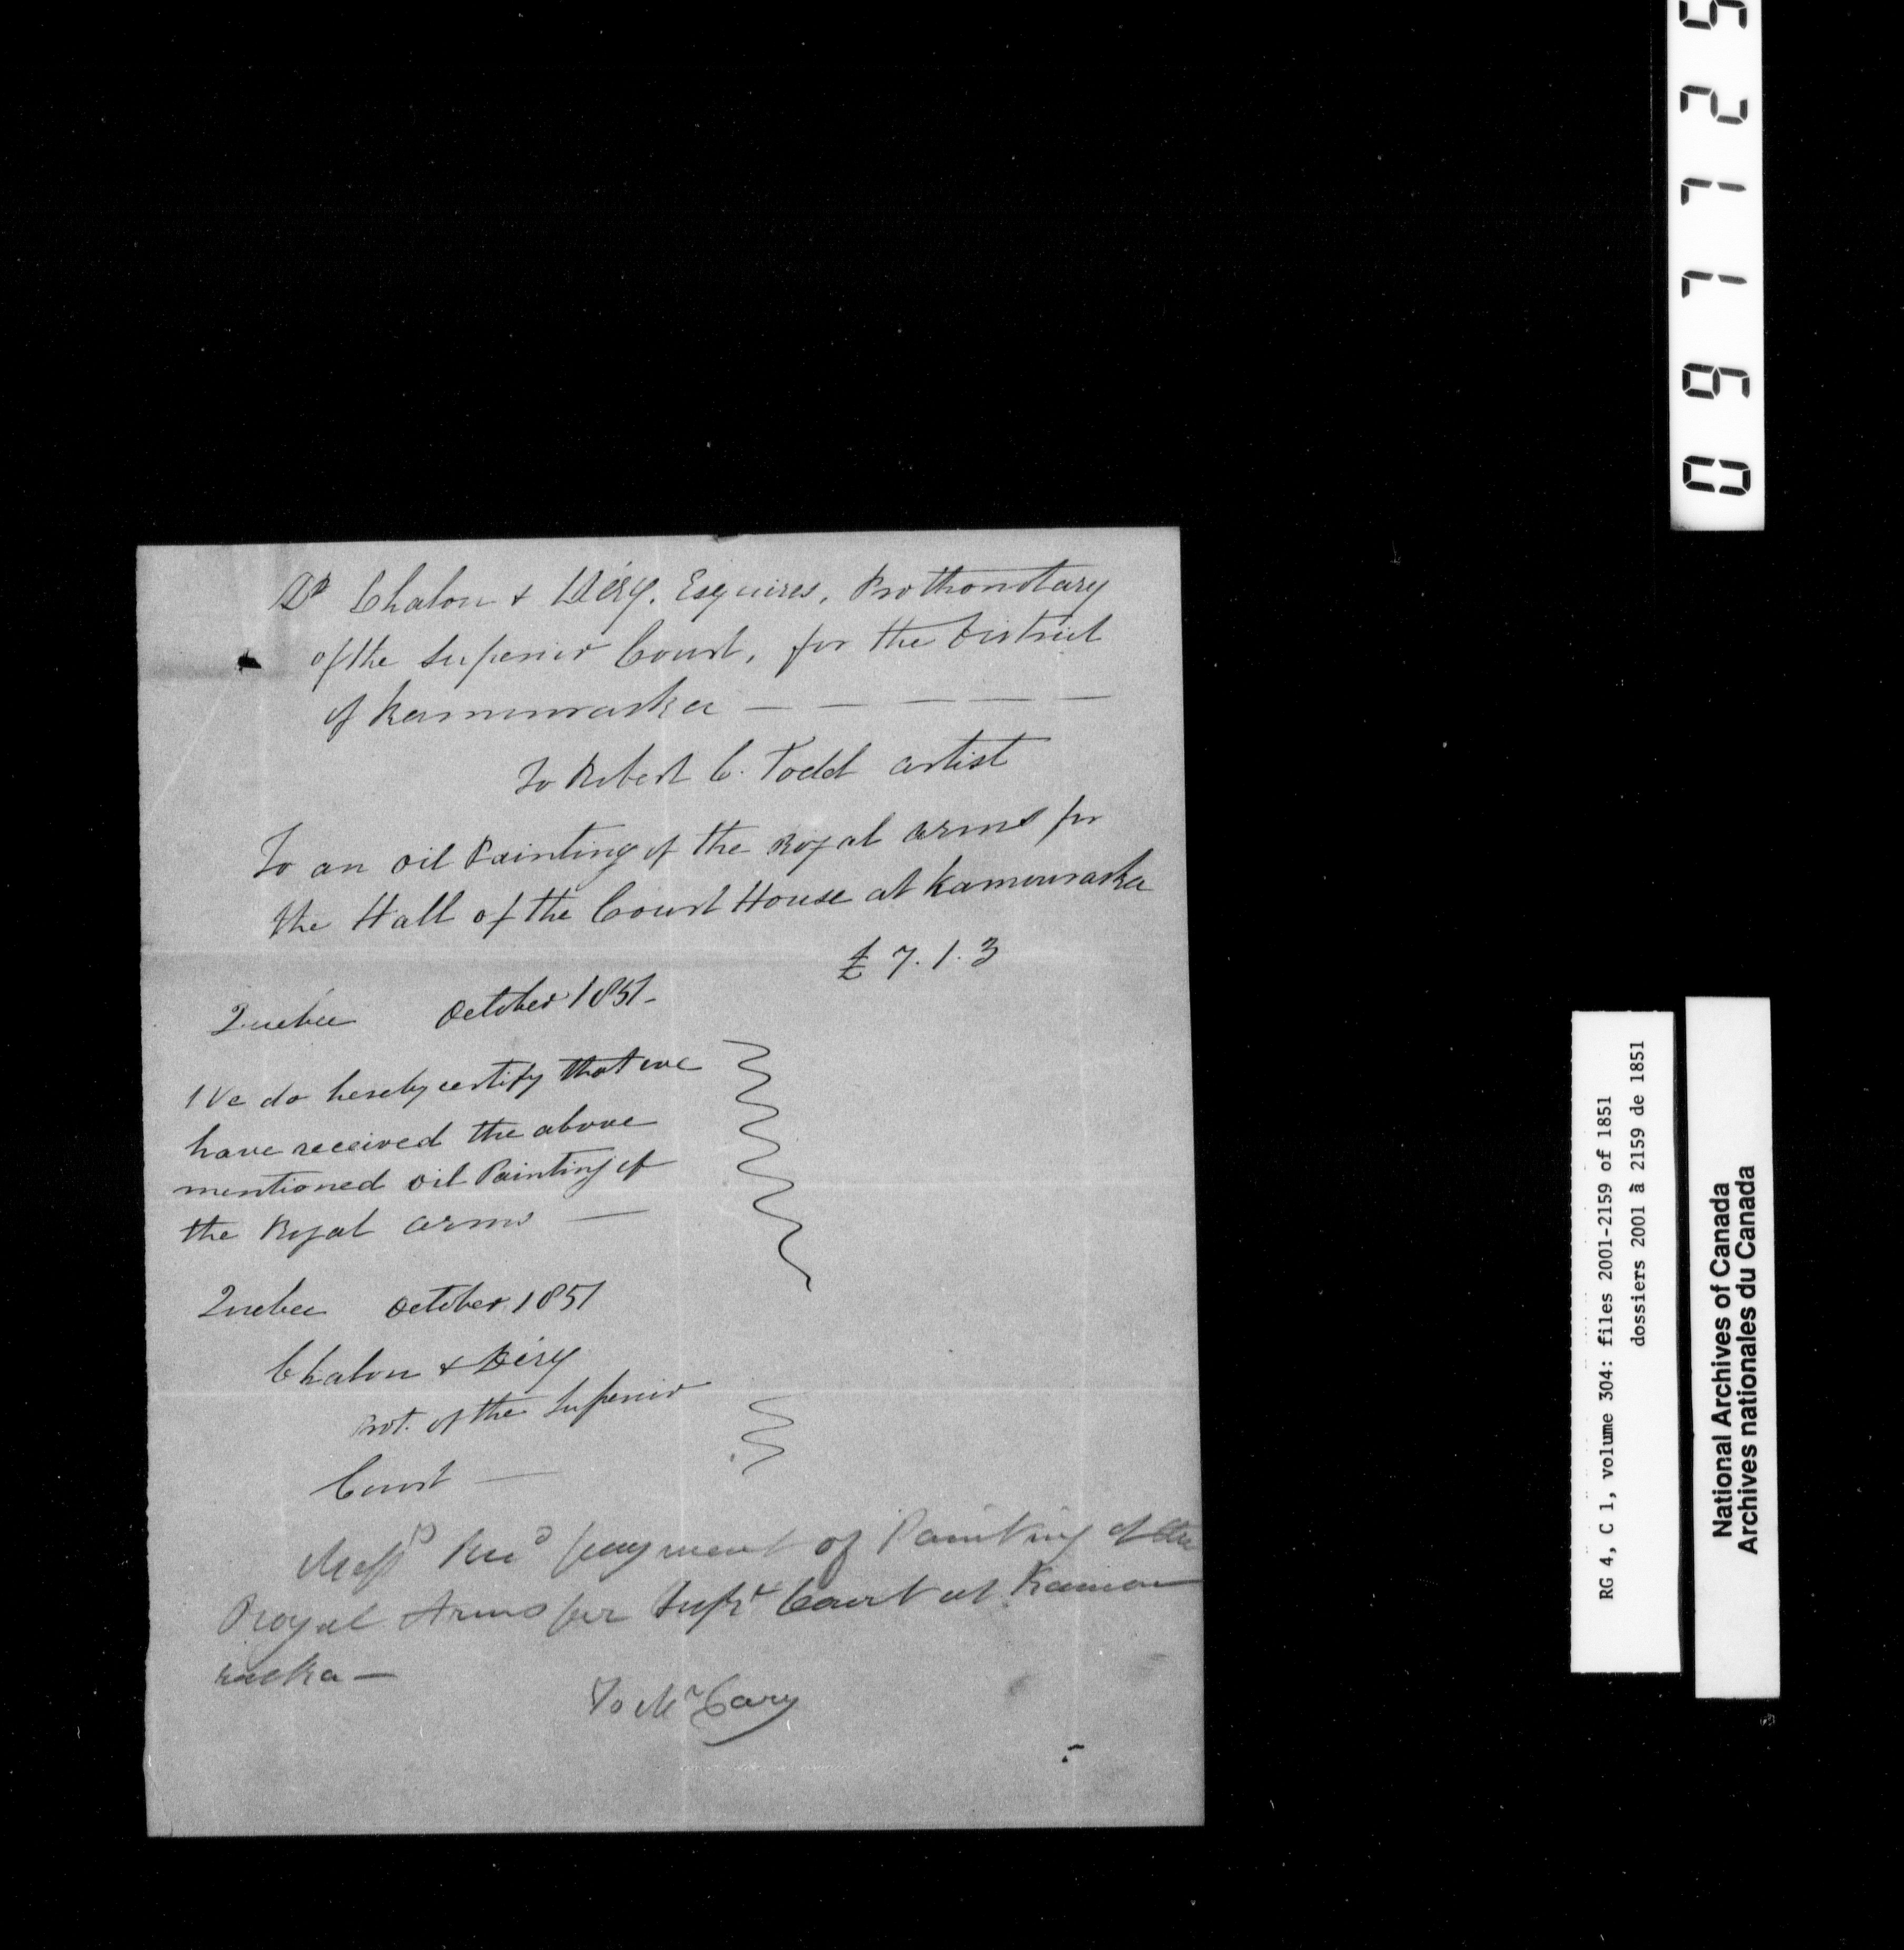 Dr Chalou & Déry, Esquires, Prothonotary
of the Superior Court, for the District
of Kamouraska — — — — —
To Robert C. Todd artist
To an oil Painting of the Royal arms for
the Hall of the Court House at Kamouraska
£ 7. 1. 3
Quebec October 1851-
We do hereby certify that we
have received the above
mentioned oil Painting of
the Royal arms —
Quebec October 1851
Chalou & Déry
Prot. of the Superior
Court —
payment of Painting of the
Royal Arms for Supr Court at Kamou
raska —
To Mr Cary
097725
RG 4, C 1, volume 304: files 2001-2159 of 1851
dossiers 2001 à 2159 de 1851
National Archives of Canada
Archives nationales du Canada